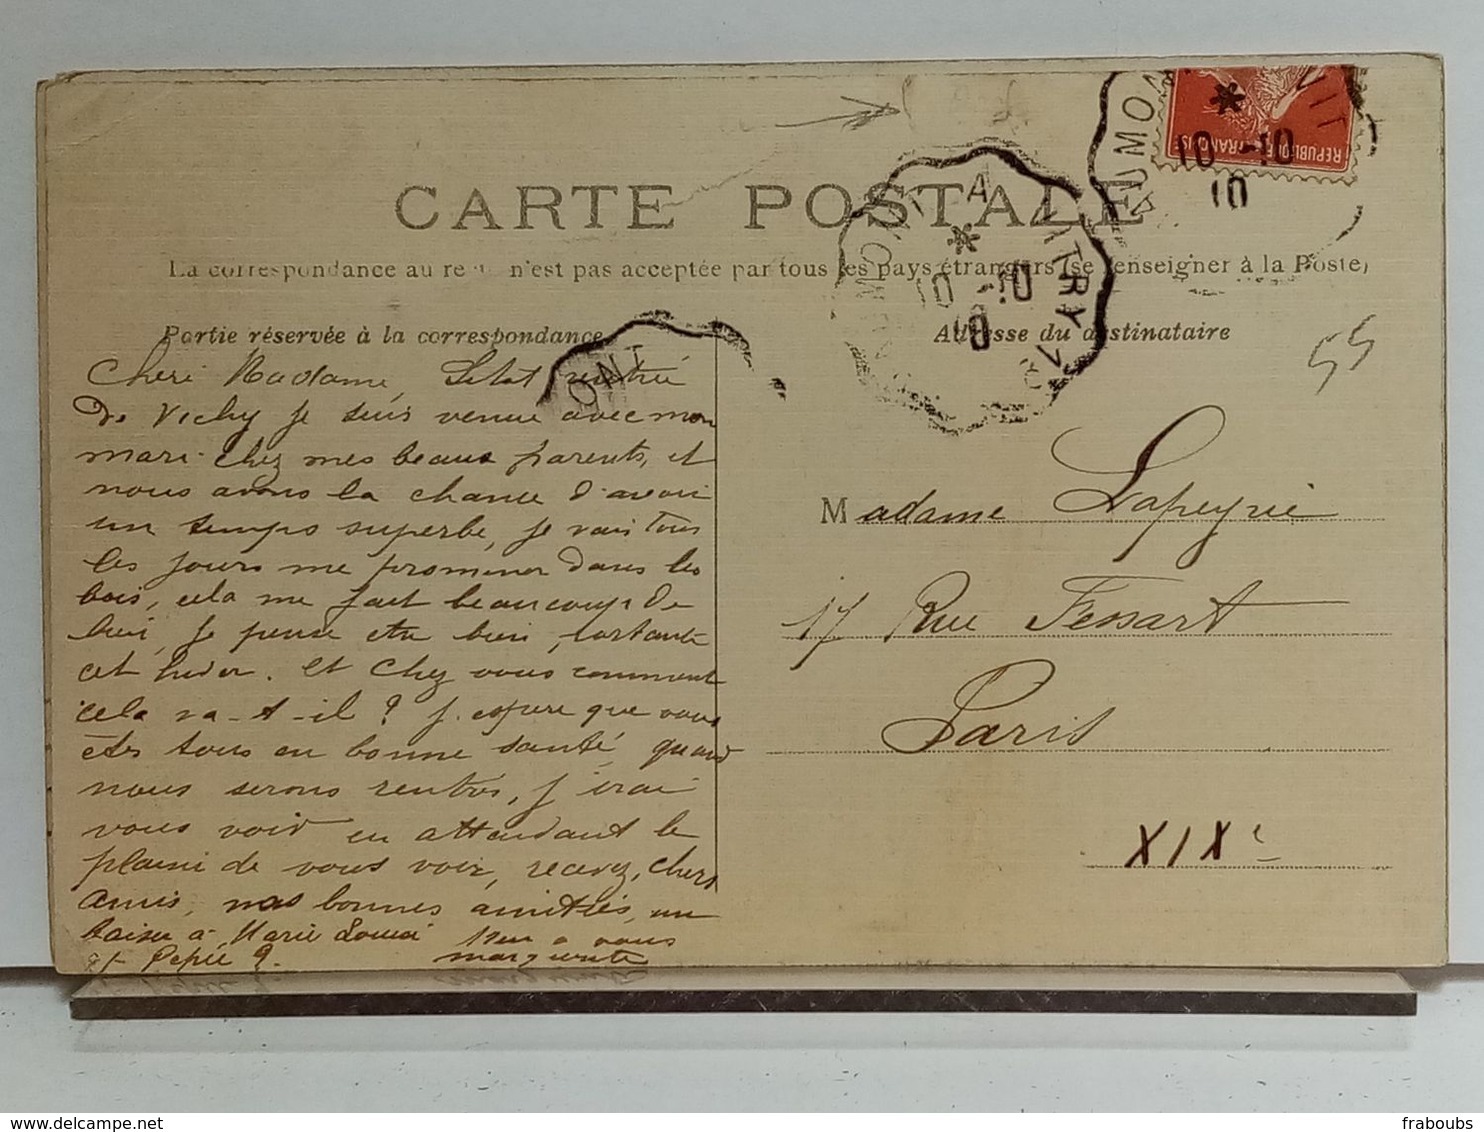 CARTE POSTALE
La correspondance au re n'est pas acceptée par tous les pays étrangers (se renseigner à la Poste)
Partie réservée à la correspondance
Adresse du destinataire
AUMON
VIT
10 -10
10
REPUBLIQUE FRANÇAISE
A VITRY
10 -10
10
ONT
55
Cheri Madame,
de Vichy je suis venue avec mon
mari chez mes beaux parents, et
nous avons la chance d'avoir
un temps superbe, je vais tous
les jours me promener dans les
bois, cela me fait beaucoup de
bien, je pense etre bien portante
cet hiver. et chez vous comment
cela va-t-il ? j. espere que vous
êtes tous en bonne santé, quand
nous serons rentrés, j irai
vous voir en attendant le
plaisir de vous voir, recevez, chers
amis, nos bonnes amitiés, un
baiser à Marie Louise
et Pepée 9. Bien a vous
marguerite
Madame Lapeyrie
17 Rue Fessart
Paris
XIXe
fraboubs